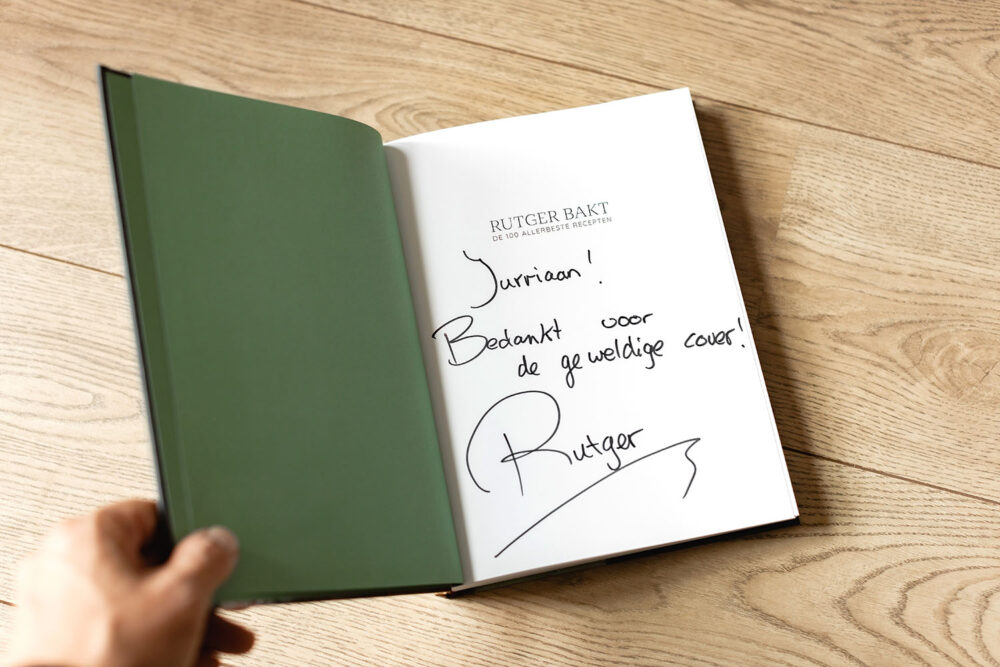 RUTGER BAKT
DE 100 ALLERBESTE RECEPTEN
Jurriaan!
Bedankt voor
de geweldige cover!
Rutger